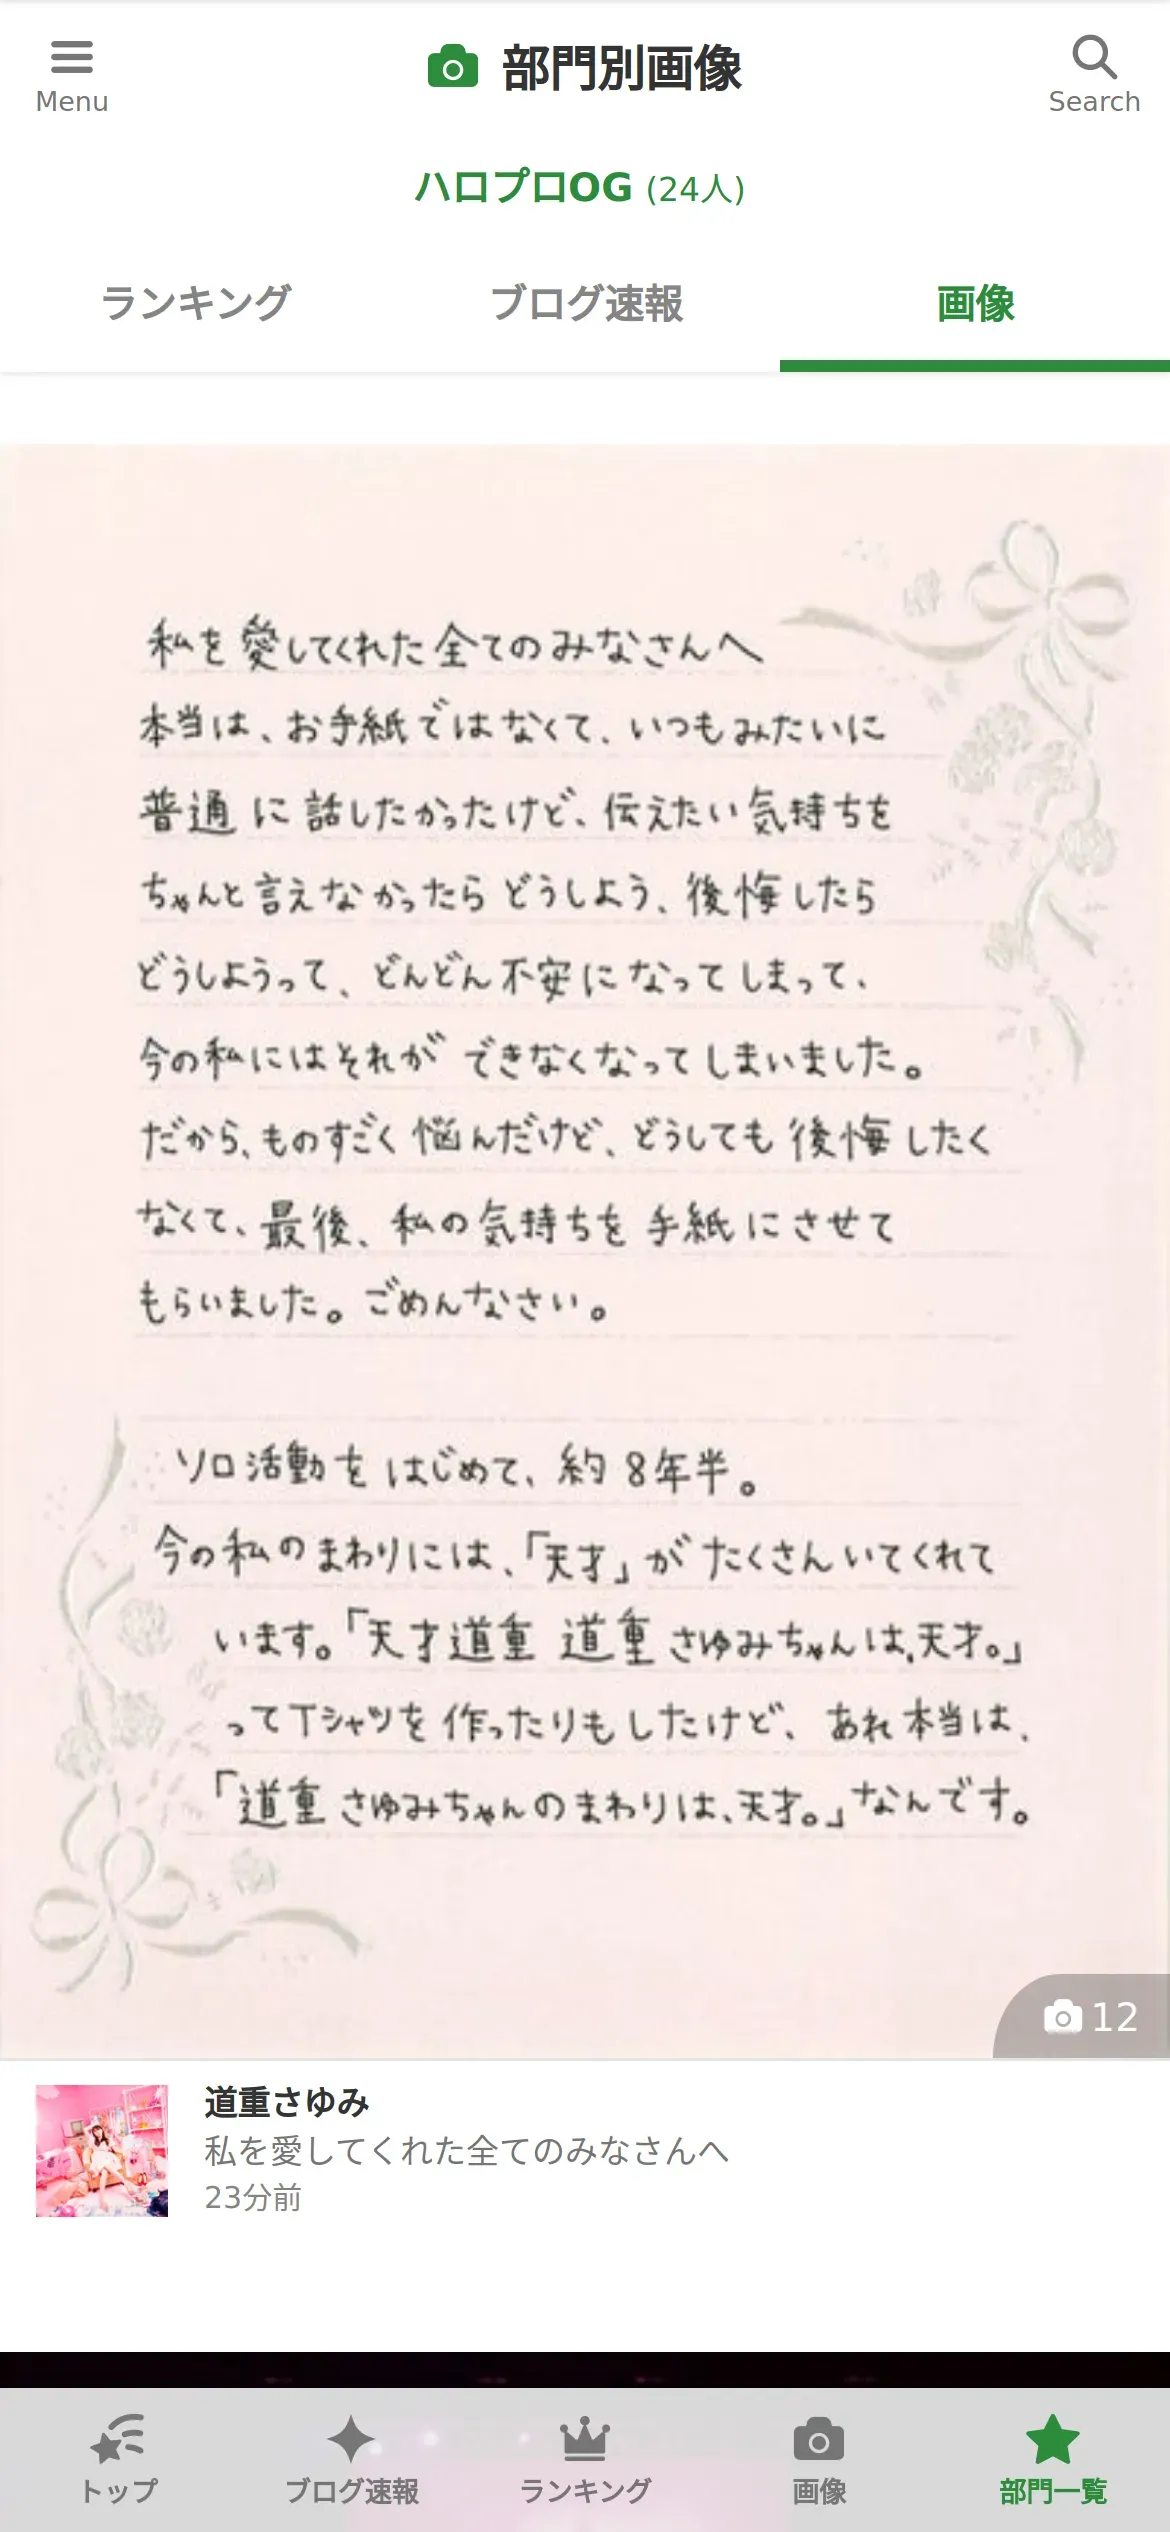 Menu
部門別画像
Search
ハロプロOG (24人)
ランキング
ブログ速報
画像
私を愛してくれた全てのみなさんへ
本当は、お手紙ではなくて、いつもみたいに
普通に話したかったけど、伝えたい気持ちを
ちゃんと言えなかったらどうしよう、後悔したら
どうしようって、どんどん不安になってしまって、
今の私にはそれができなくなってしまいました。
だから、ものすごく悩んだけど、どうしても後悔したく
なくて、最後、私の気持ちを手紙にさせて
もらいました。ごめんなさい。
ソロ活動をはじめて、約8年半。
今の私のまわりには、「天才」がたくさんいてくれて
います。「天才道重 道重さゆみちゃんは、天才。」
ってTシャツを作ったりもしたけど、あれ本当は、
「道重さゆみちゃんのまわりは、天才。」なんです。
12
道重さゆみ
私を愛してくれた全てのみなさんへ
23分前
トップ
ブログ速報
ランキング
画像
部門一覧